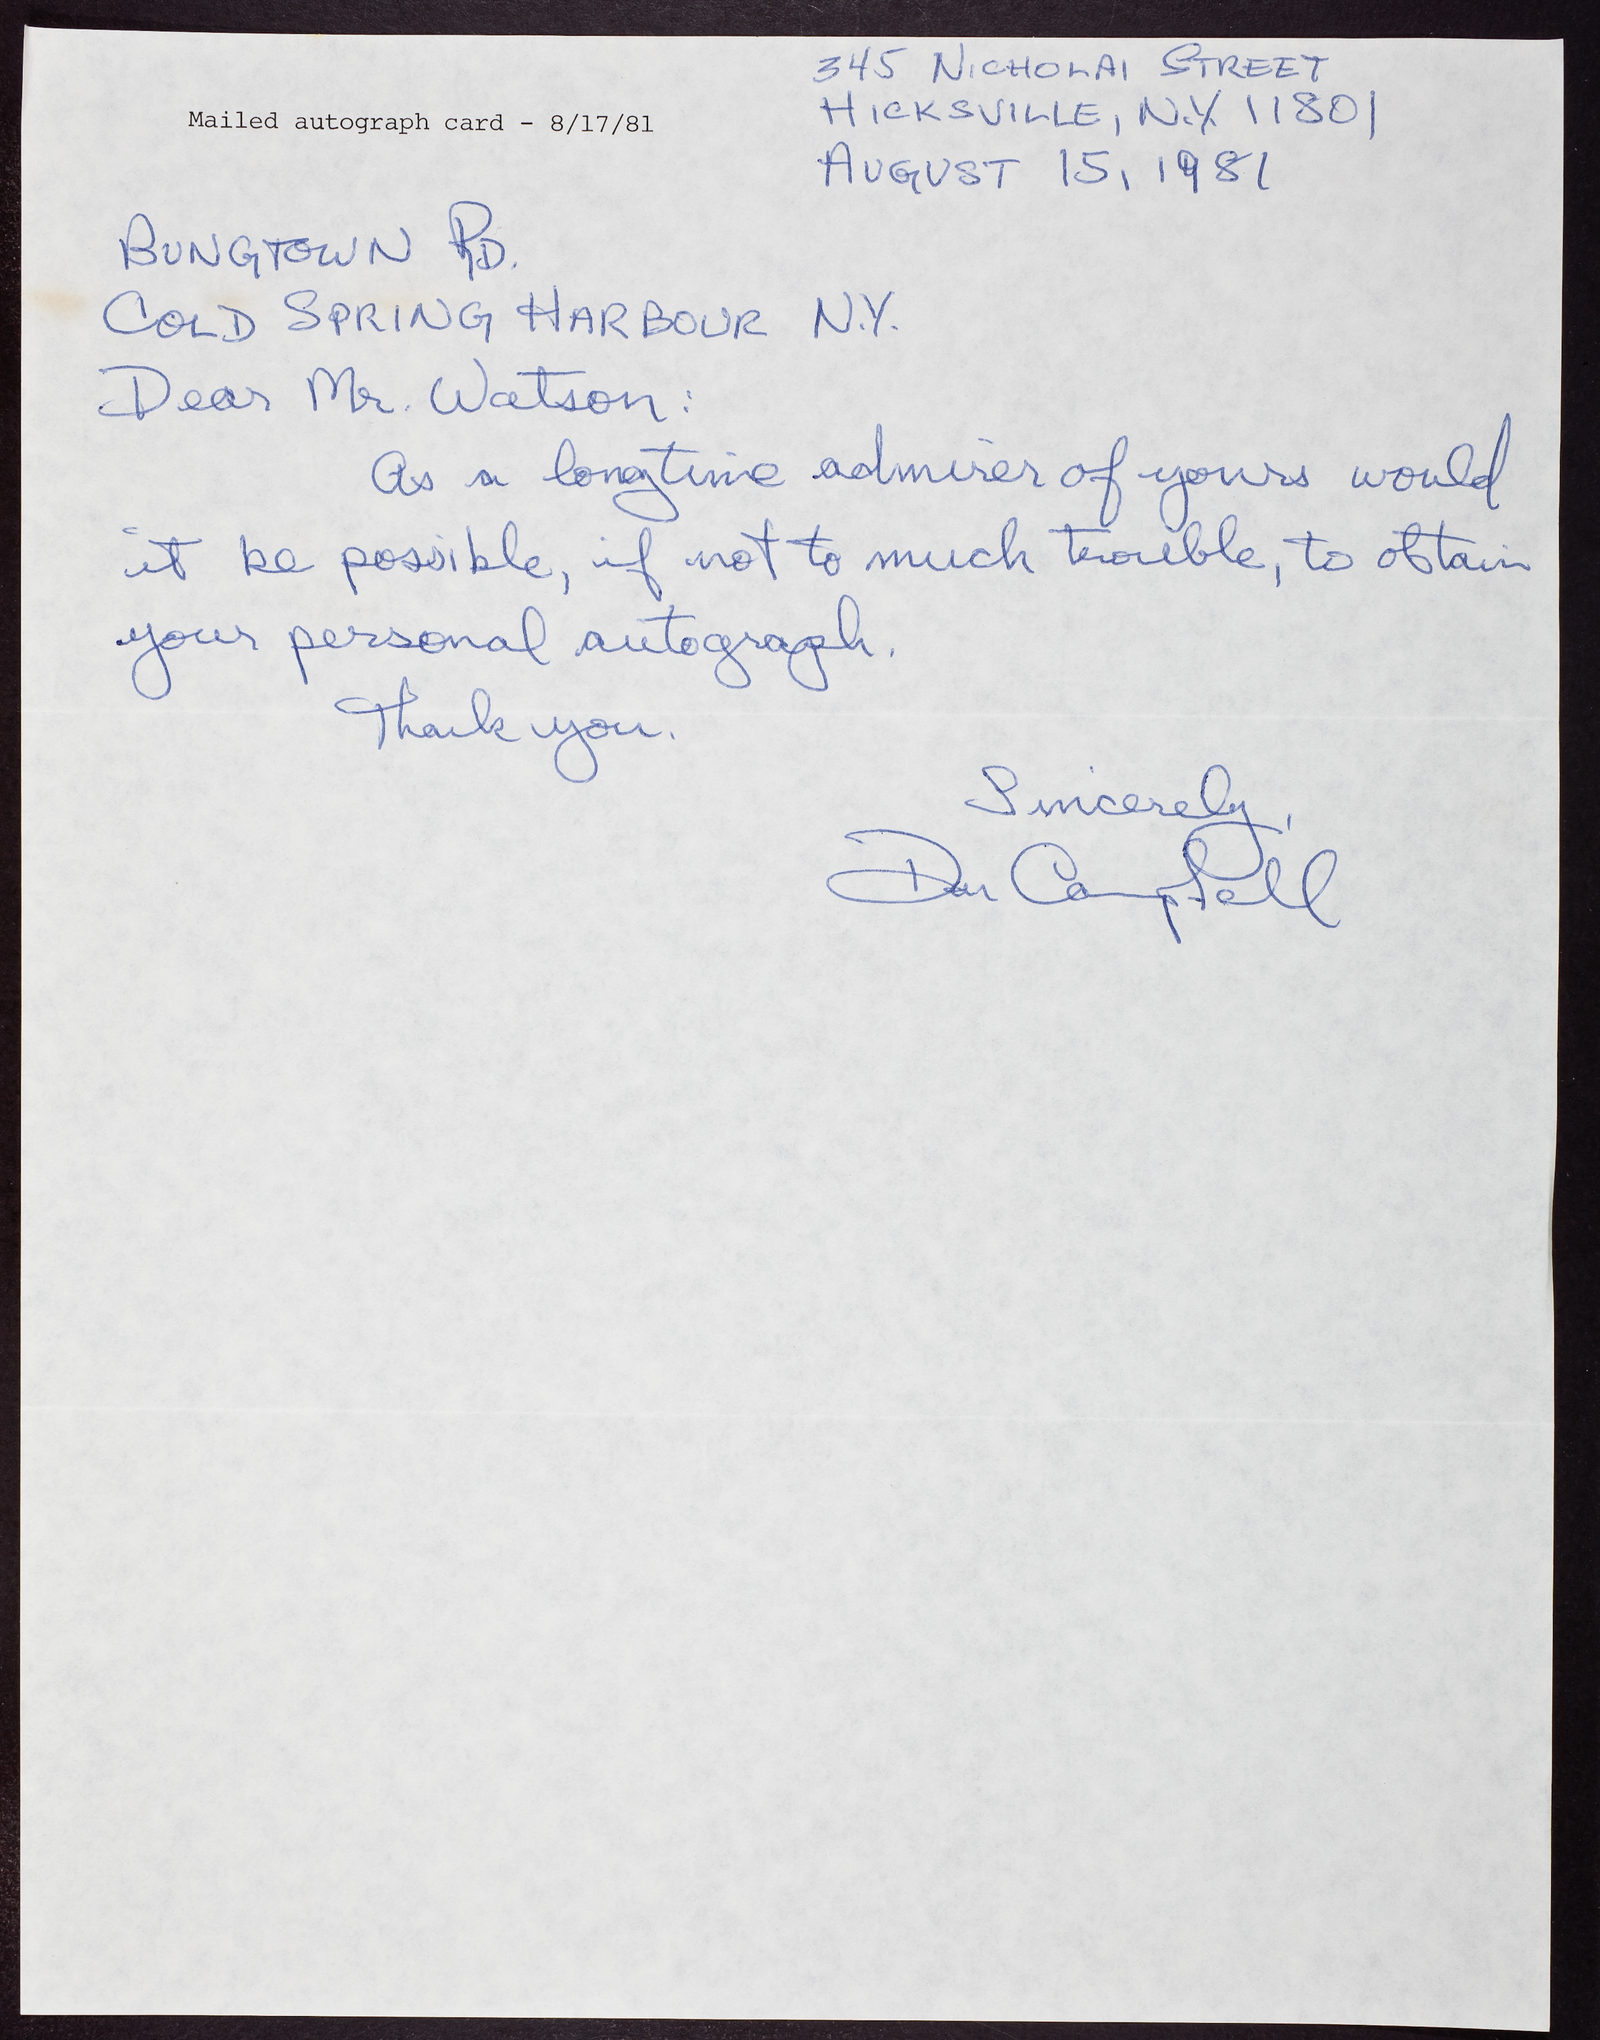 345 NICHOLAI STREET
Mailed autograph card - 8/17/81
HICKSVILLE, N.Y. 11801
AUGUST 15, 1981
BUNGTOWN RD.
COLD SPRING HARBOUR N.Y.
Dear Mr. Watson:
As a longtime admirer of yours would
it be possible, if not to much trouble, to obtain
your personal autograph.
Thank you.
Sincerely,
Campbell